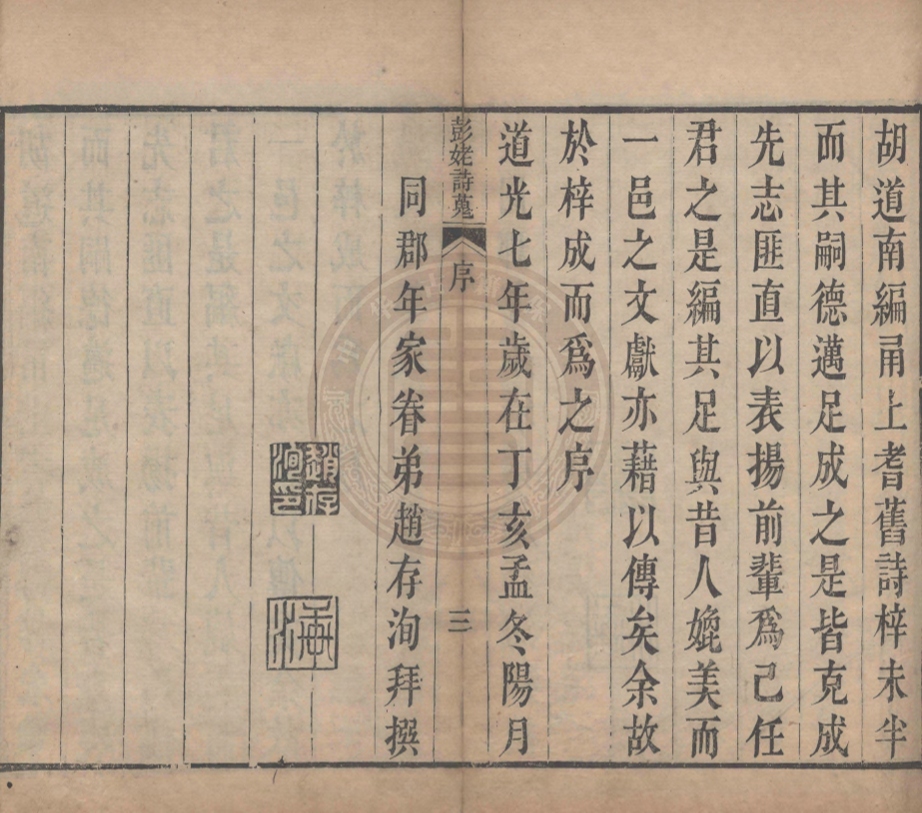 胡道南編甬上耆舊詩梓未半
而其嗣德邁足成之是皆克成
先志匪直以表揚前輩爲己任
君之是編其足與昔人媲美而
一邑之文獻亦藉以傳矣余故
於梓成而爲之序
道光七年歲在丁亥孟冬陽月
彭姥詩蒐
序
三
同郡年家眷弟趙存洵拜撰
趙存洵印